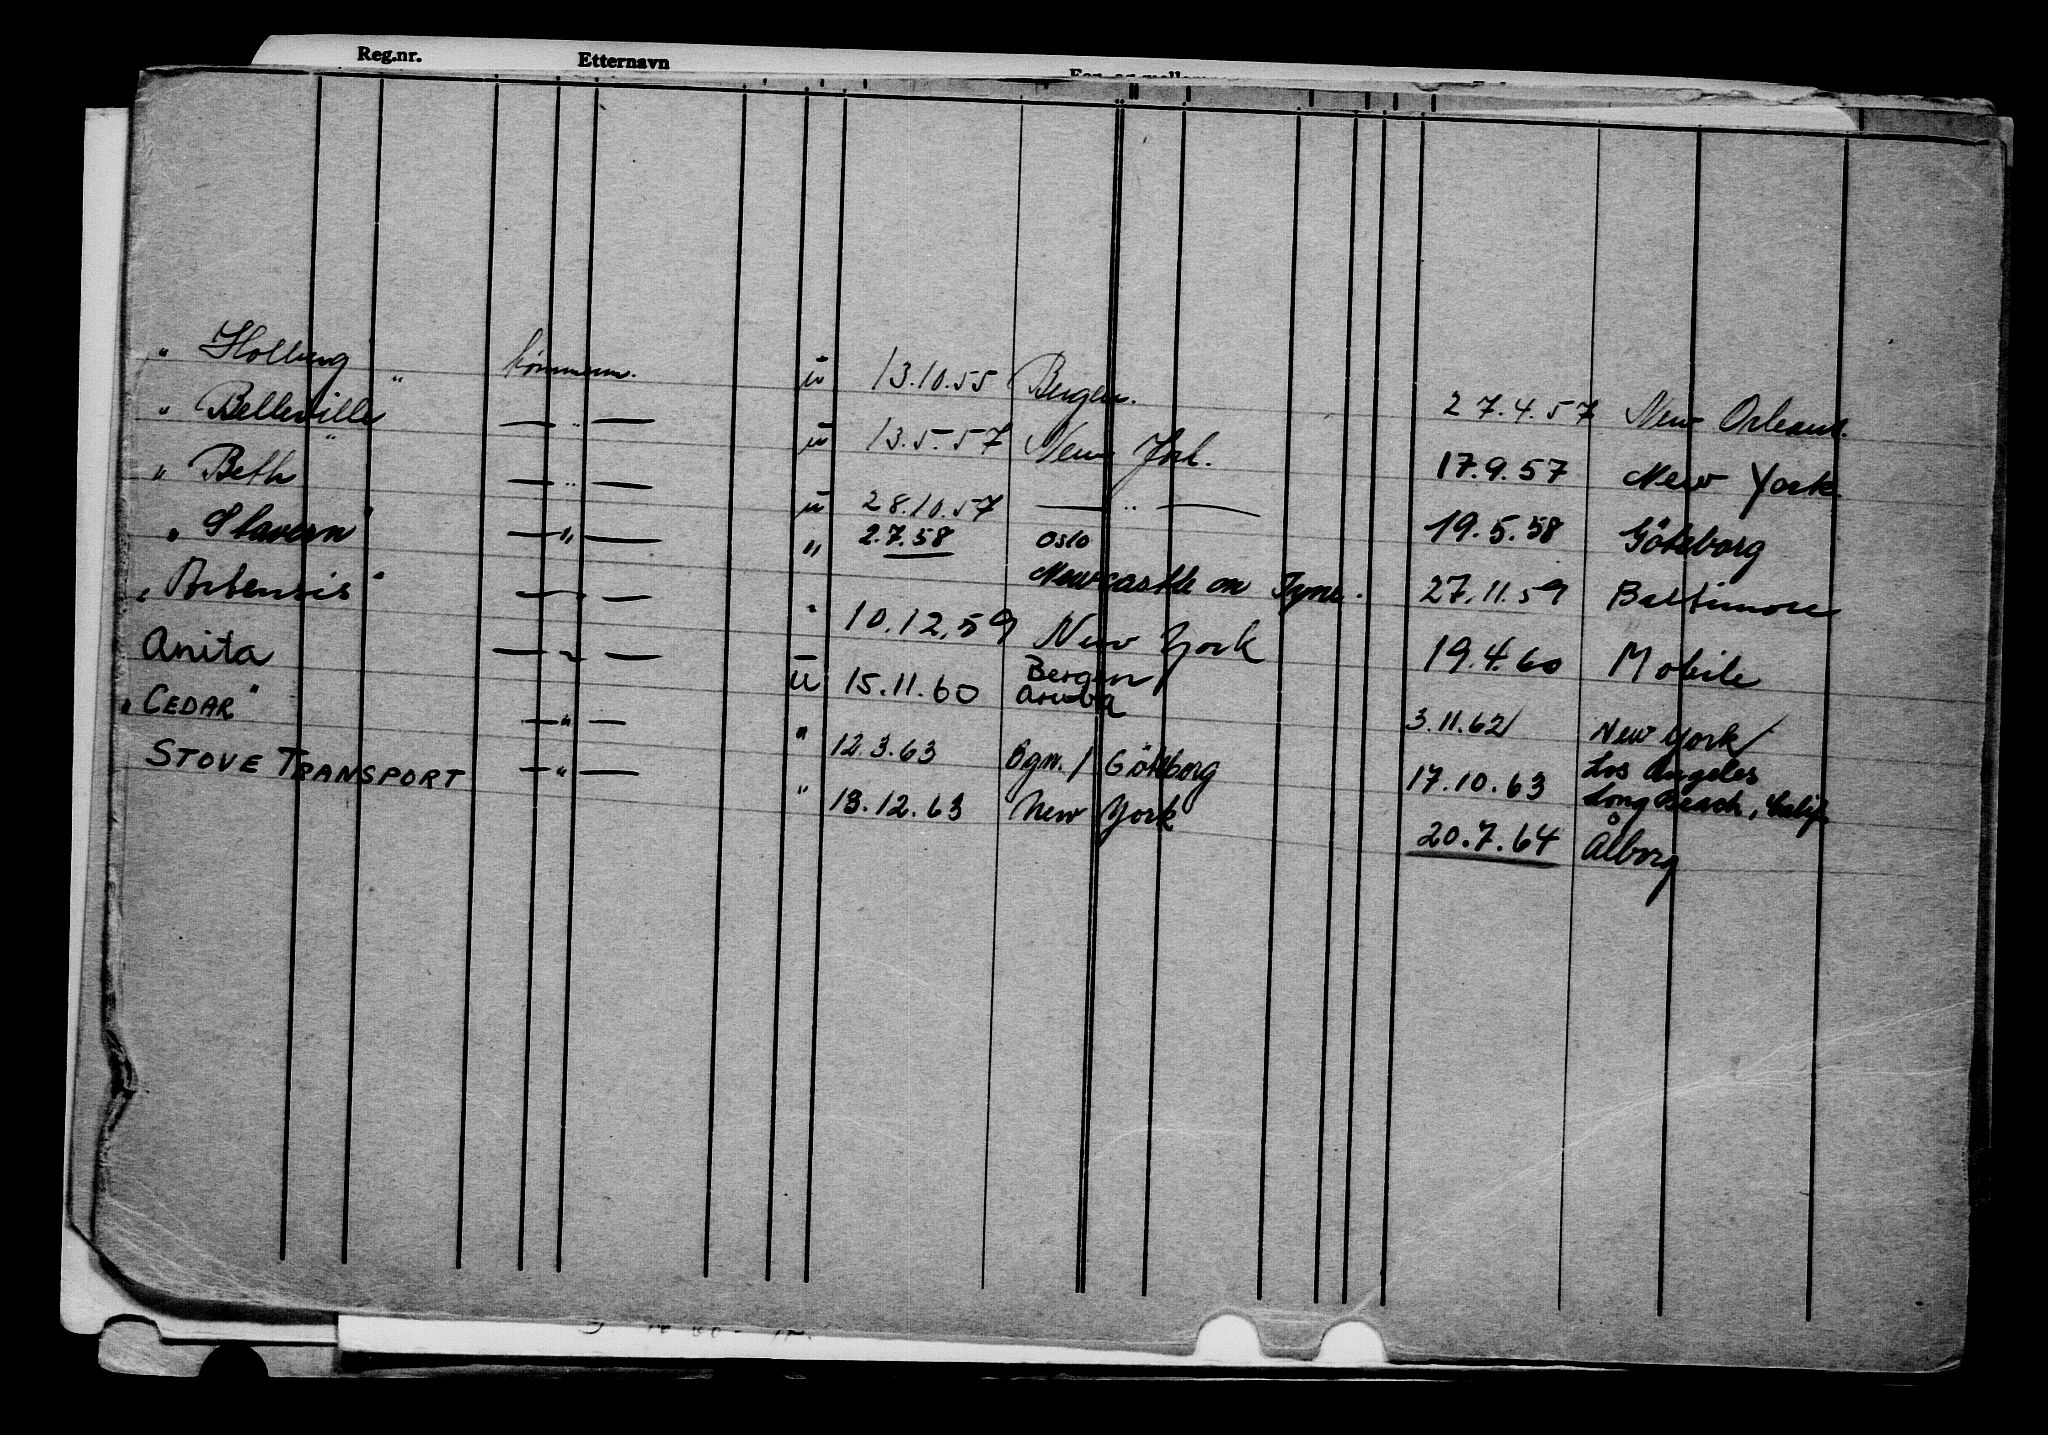 Reg.nr. Etternavn
" Holberg " tømmerm. u 13.10.55 Bergen. 27.4.57 New Orleans.
" Belleville " — " — u 13.5.57 New York. 17.9.57 New York
" Beth — " — u 28.10.57 — " — 19.5.58 Göteborg
" Stavern " — " — " 2.7.58 Oslo
Newcastle on Tyne. 27.11.59 Baltimore
" Arbensis " — " — " 10.12.59 New York 19.4.60 Mobile
Anita — " — u 15.11.60 Bergen/
Aruba 3.11.62 New York
" CEDAR " — " — " 12.3.63 Bgn. / Göteborg 17.10.63 Los Angeles
Long Beach, Calif.
STOVE TRANSPORT — " — " 13.12.63 New York 20.7.64 Ålborg